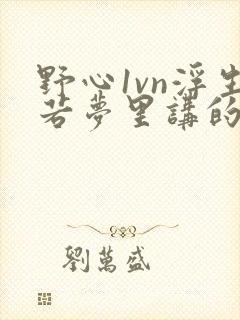 野心1vn浮生
若夢里講的
劉萬盛